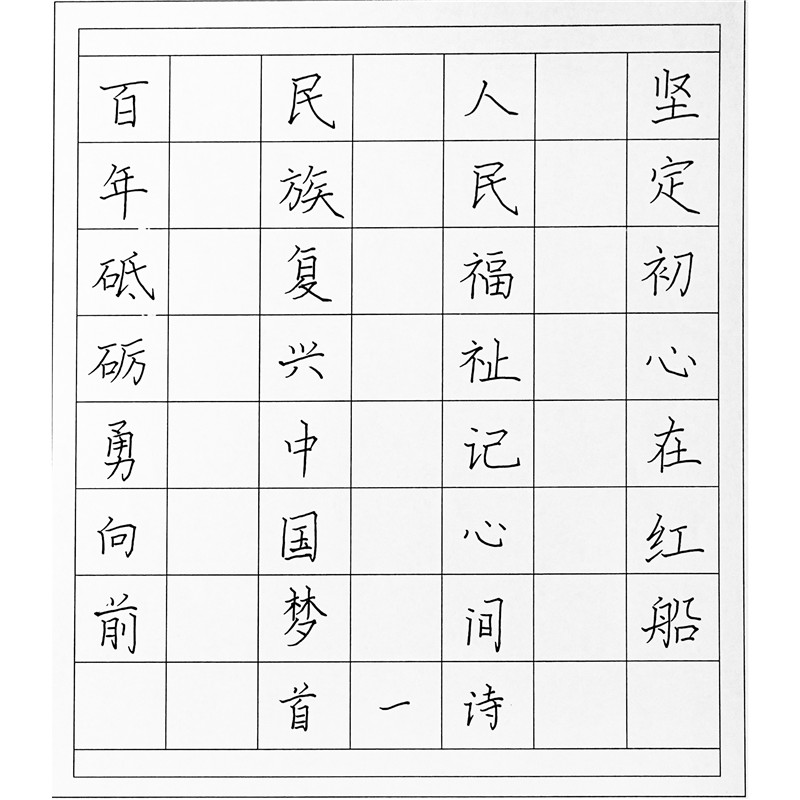 坚定初心在红船
人民福祉记心间
民族复兴中国梦
百年砥砺勇向前
诗一首